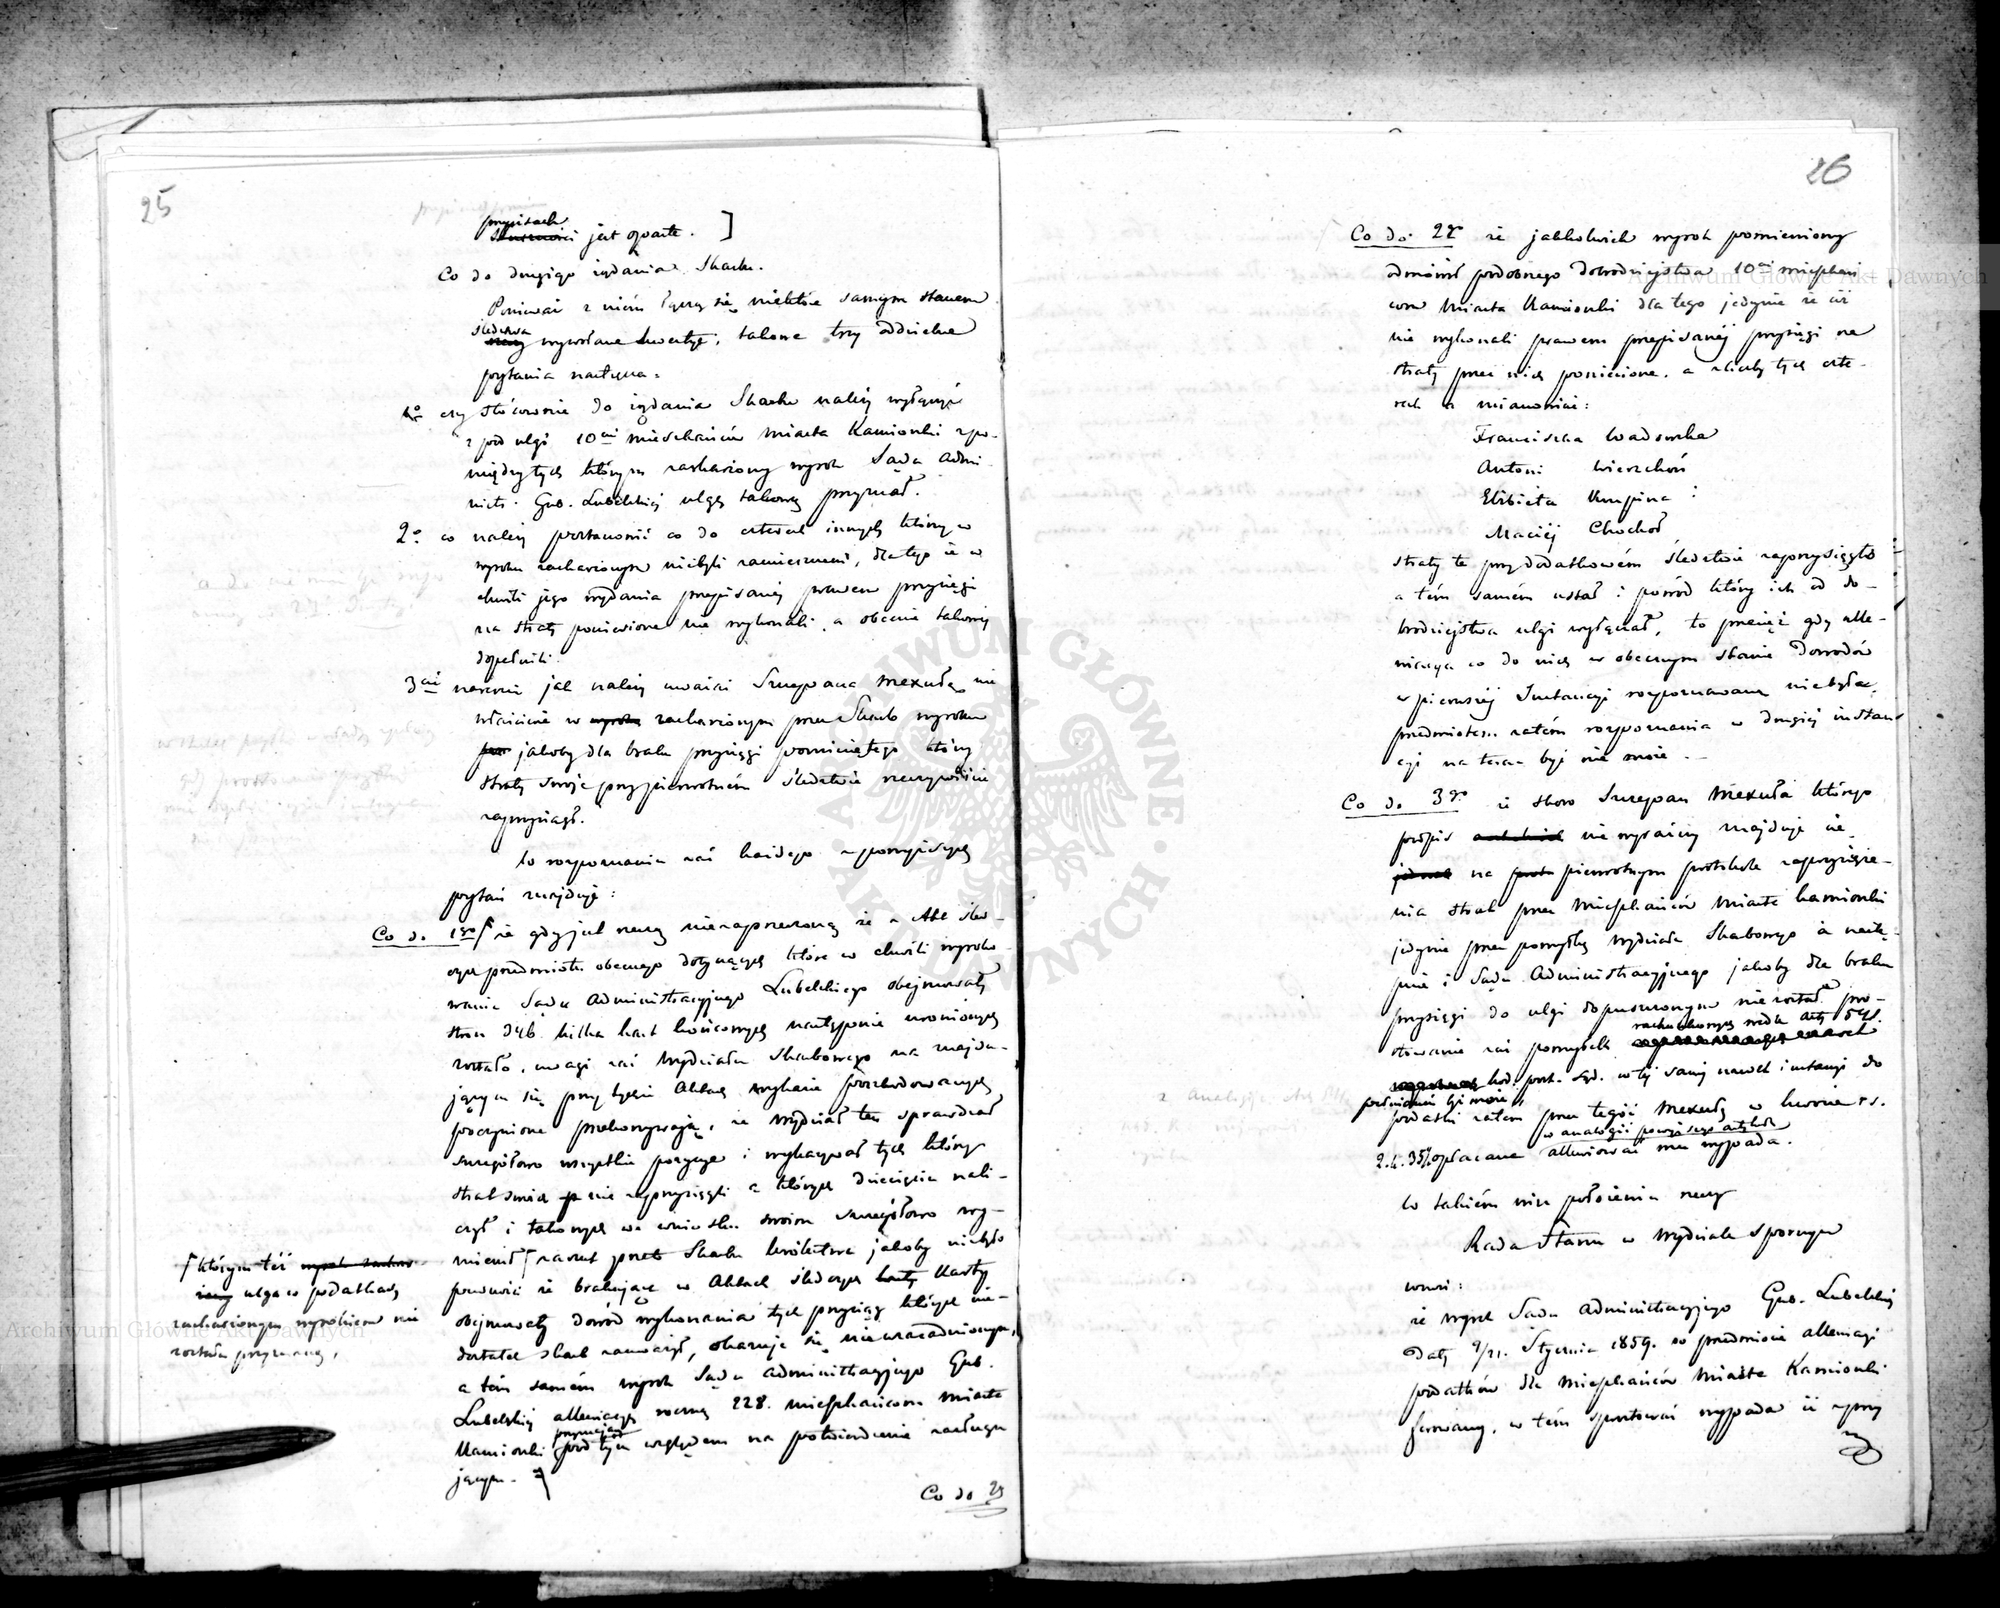 25
przepisach
słuszności jest oparte. ]
Co do drugiego żądania Skarbu.
Ponieważ z niém łączą się niektóre samym stanem
śledztwa
wywołane kwestye, takowe trzy oddzielne
pytania nastręcza=
1o czy stósownie do żądania Skarbu należy wyłączyć
z pod ulgi 10ciu mieszkańców miasta Kamionki z po-
między tych którym zaskarżony wyrok Sądu Admi-
nistr. Gub. Lubelskiej ulgę takową przyznał.
2o co należy postanowić co do czterech innych którzy w
wyroku zaskarżonym niebyli zamieszczeni, dla tego że w
chwili jego wydania przepisanej prawem przysięgi
na straty poniesione nie wykonali, a obecnie takowej
dopełnili.
3cie nareszcie jak należy uważać Szczepana Mexułę nie
właściwie w wyroku zaskarżonym przez Skarb wyroku
jakoby dla braku przysięgi pominiętego który
straty swoje przy pierwotném śledztwie rzeczywiście
zaprzysiągł.
W rozpoznaniu zaś każdego z powyższych
pytań znajduje:
Co do 1go że gdy jak rzeczą niezaprzeczoną że z Akt śled-
czych przedmiotu obecnego dotyczących które w chwili wyroko-
wania Sądu Administracyjnego Lubelskiego obejmowały
stron 346 kilka kart końcowych następnie uronionych
zostało, uwagi zaś Wydziału Skarbowego na znajdu-
jącym się przy tychże Aktach wykazie poszkodowanych
poczynione przekonywają, że Wydział ten sprawdzał
szczegółowo wszystkie pozycye i wykazywał tych którzy
strat swoich nie zaprzysięgli a których dziesięciu nali-
czył i takowych we wniosku swoim szczegółowo wy-
mienił [ zarzut przeto Skarbu królestwa jakoby niebyło
pewności że brakujące w Aktach śledczych karty
obejmowały dowód wykonania tych przysiąg których nie-
dostatek Skarb zauważył, okazuje się nieuzasadnionym,
a tém samém wyrok Sądu Administracyjnego Gub.
Lubelskiej allewiacyą roczną 228. mieszkańcom miasta
przyznający
Kamionki pod tym względem na potwierdzenie zasługu-
jącym.
[ którym też wyrok zaskar-
żony ulga w podatkach
zaskarżonym wyrokiem nie
została przyznaną,
Co do 2g
26
Co do 2go że jakkolwiek wyrok pomieniony
odmówił podobnego dobrodziejstwa 10ciu mieszkań-
com miasta Kamionki dla tego jedynie że ciż
nie wykonali prawem przepisanej przysięgi na
straty przez nich poniesione, a z liczby tych czte-
rech a mianowicie:
Franciszka Wadowska
Antoni Wierzchoń
Elżbieta Krupina
Maciej Chochoł
straty te przy dodatkowém śledztwie zaprzysięgło
a tém samém ustał i powód który ich od do-
brodziejstwa ulgi wyłączał, to przecież gdy alle-
wiacya co do nich w obecnym stanie dowodów
w pierwszej Instancyi rozpoznawaną niebyła,
przedmiotem zatém rozpoznania w drugiej instan-
cyi na teraz być nie może.
Co do 3go że skoro Szczepan Mexuła którego
podpis niewyraźny znajduje się
na pierwotnym protokole zaprzysięże-
nia strat przez mieszkańców miasta Kamionki
jedynie przez pomyłkę wydziału Skarbowego a nastę-
pnie i Sądu Administracyjnego jakoby dla braku
przysięgi do ulgi dopuszczonym nie został pro-
stowanie zaś pomyłek
rachunkowych wedle Arty 541.
kod. post. Sąd. w tej samej nawet instancyi do
pełnioném być może,
podatki zatém przez tegoż Mexułę w kwocie rs.
w analogii powyższego artykułu
2. k. 35½ opłacane allewiować mu wypada.
W takiém więc położeniu rzeczy
Rada Stanu w Wydziale Spornym
wnosi:
że wyrok Sądu Administracyjnego Gub. Lubelskiej
daty 9/21. Stycznia 1859. w przedmiocie allewiacyi
podatków dla mieszkańców miasta Kamionki
ferowany, w tém sprostować wypada iż z przy